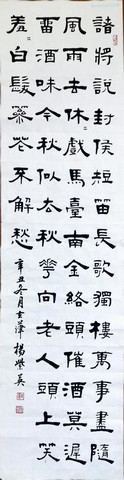 諸將說封侯短笛長歌獨樓萬事盡隨
風雨去休〻戲馬臺南金絡頭催酒莫遲
留酒味今秋似去秋華向老人頭上笑
羞〻白髮簪花不解愁
辛丑冬月 楊 英